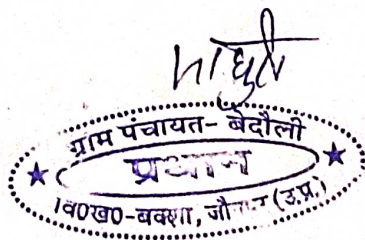 माधुरी
ग्राम पंचायत- बेदौली
प्रधान
वि0ख0-बक्शा, जौनपुर (उ.प्र.)